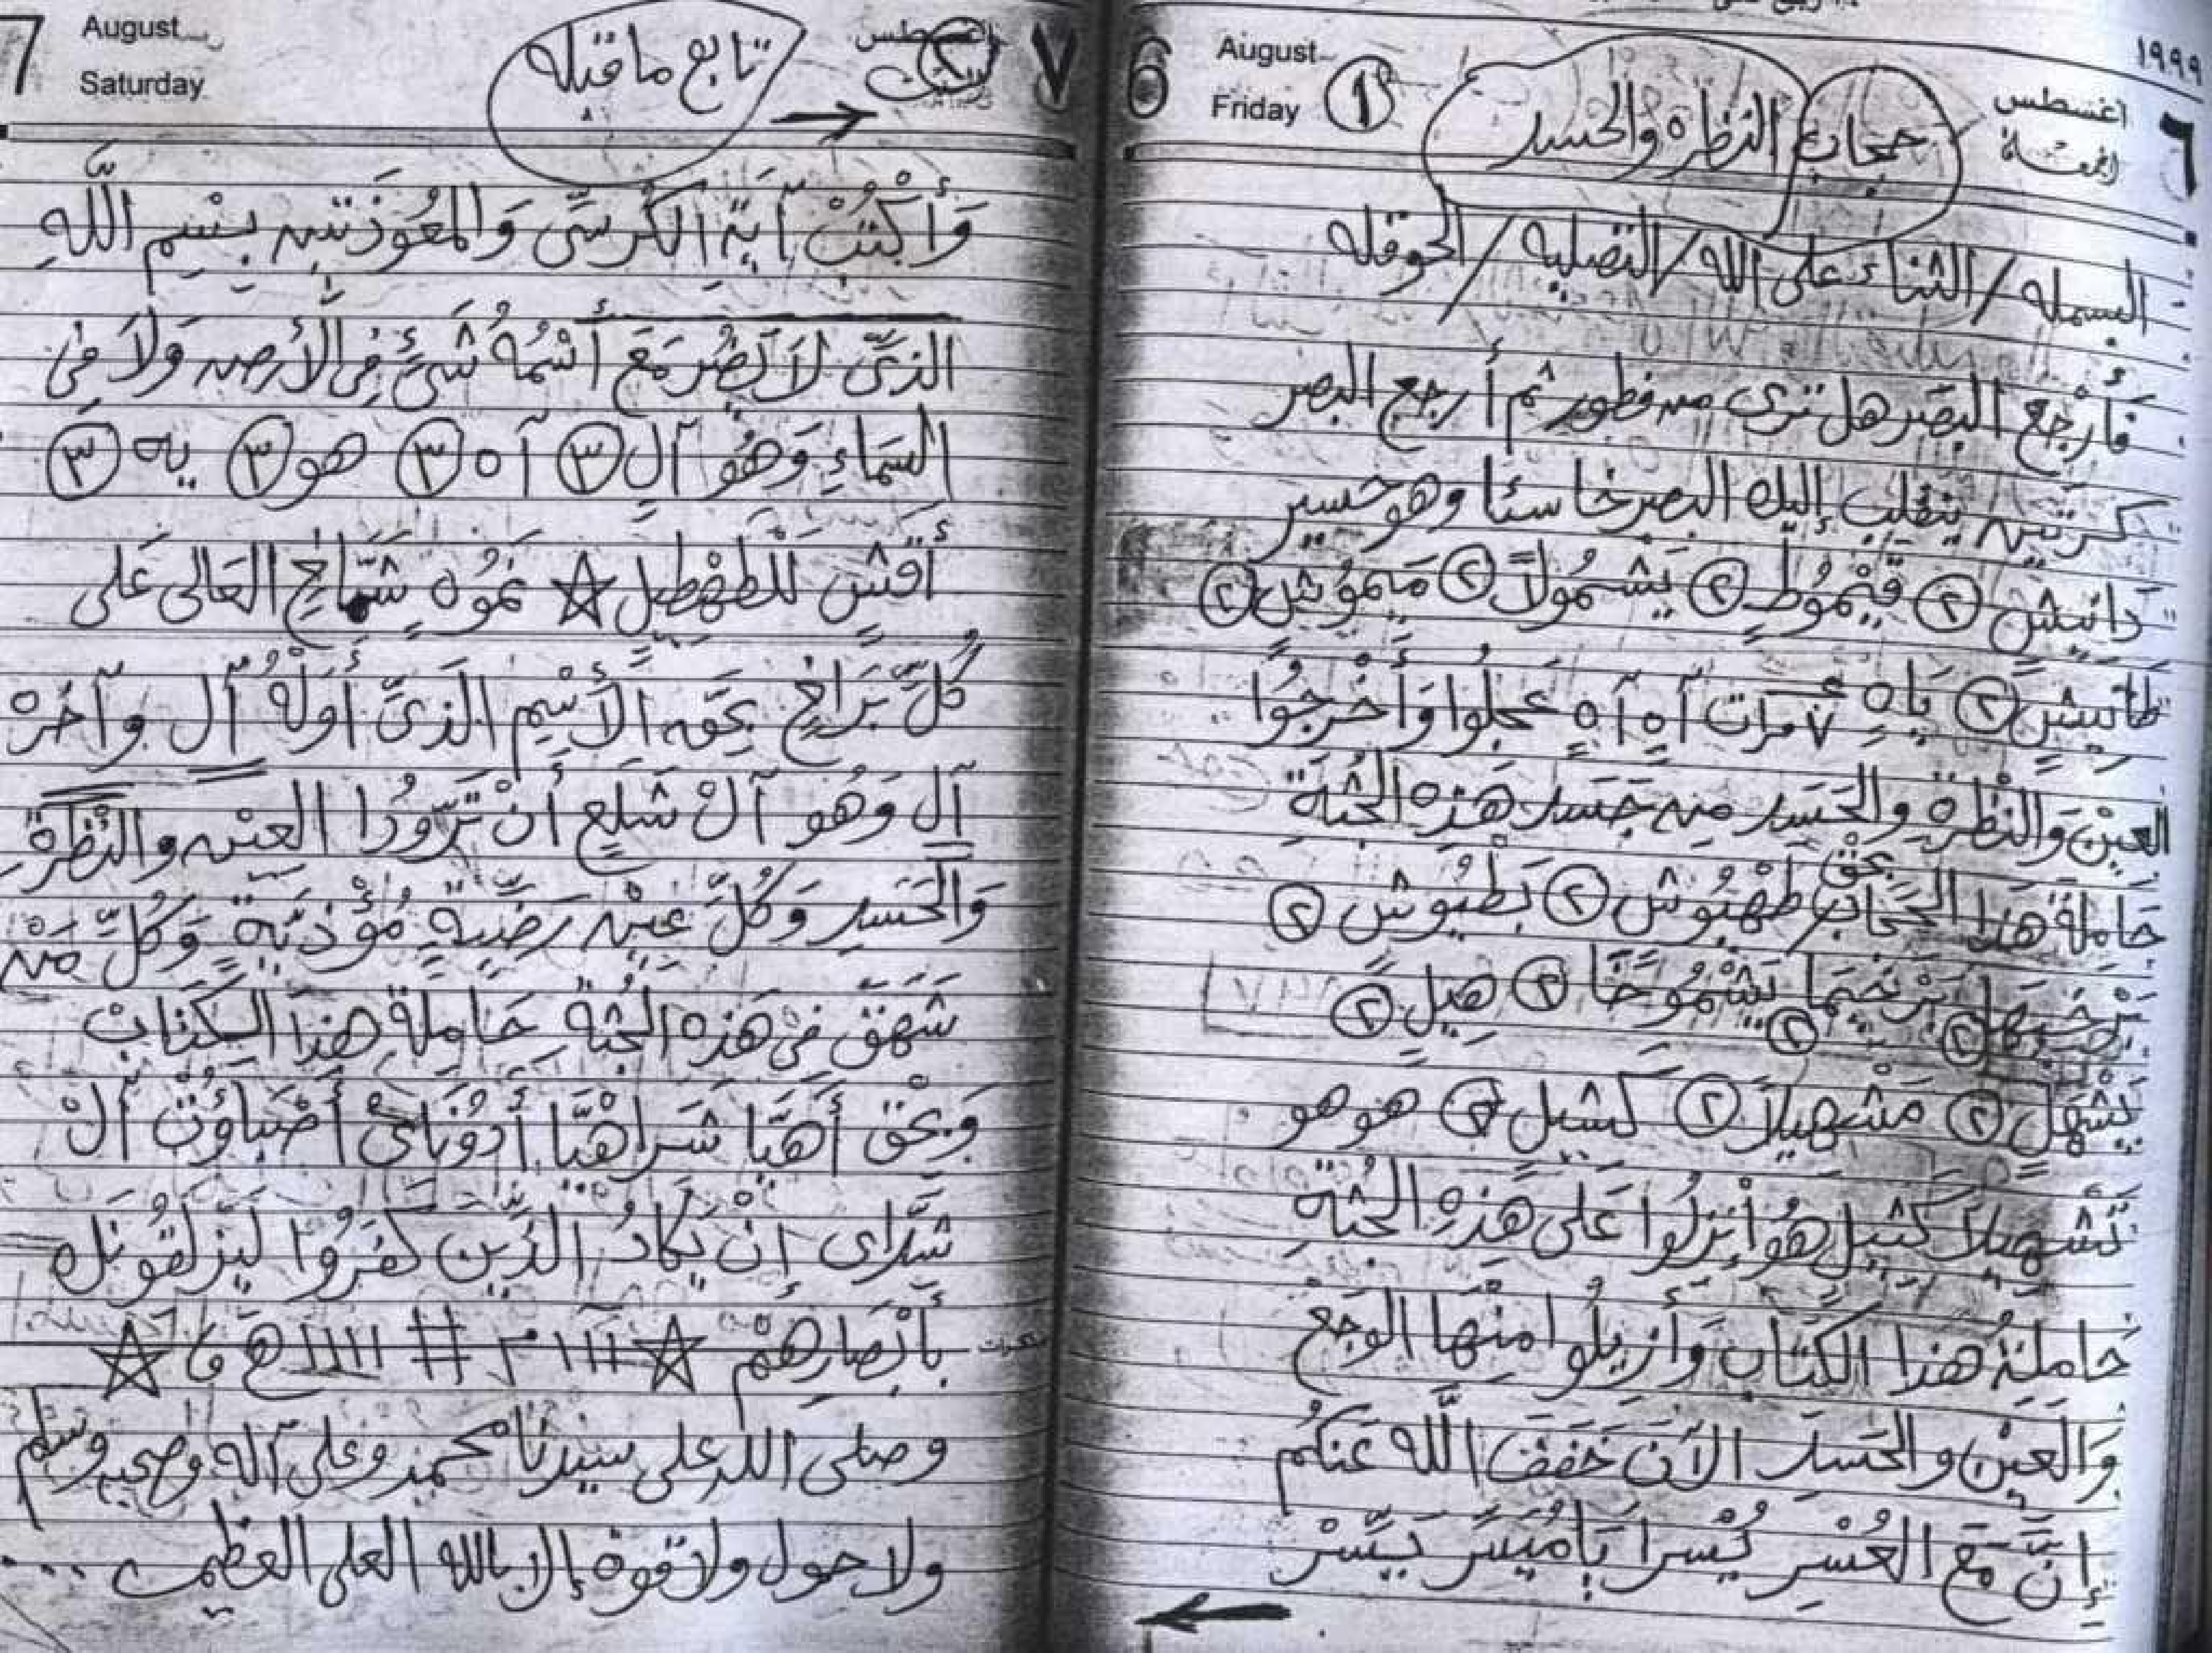 ١٩٩٩
6 August Friday ١ أغسطس الجمعة ٦
حجاب النظرة والحسد
البسمله / الثناء على الله / التصليه / الحوقله
فَأرْجِع البَصَر هل ترى من فطور ثم أرجع البصر
كرتين ينقلب إليك البصر خاسئا وهو حسير
دَانِيشٍ ٢ قَيْمُوطٍ ٢ يَشْمُولاً ٢ مَيمُوشٍ ٢
طَانِيشٍ ٢ يَاهٍ ٧ مرات آهٍ آهٍ عَجِلُوا وَأَخْرِجُوا
العَيْنِ وَالنَظْرَةِ والحَسَدِ مِنْ جَسَدِ هَذِهِ الجُثَةِ
حَامِلَةَ هَذا الحِجَابِ بِحَقْ طَهْيُوشٍ ٢ بَطْيُوشٍ ٢
٢ ٢ هِيلٍ ٢
٢ مَشْهِيلاً ٢ كَشِيلٍ ٢ هو هو
هُو أَنْزِلُوا عَلَى هَذِهِ الجُثَةِ
حَامِلَةُ هَذا الكِتَابِ وَأَزِيلُوا مِنْهَا الوَجَعَ
وَالعَيْنِ والحَسَدِ الآنَ خَفَفَ اللَّه عَنكُم
إِنَّ مَعَ العُسْرِ يُسْراً يَا مُيَسِّر يَسِّرْ
7 August Saturday تابع ما قبله ٢ أغسطس السبت ٧
وَأَكْتُبْ آيَة الكُرْسِّى وَالمُعَوذَتَيِن بِسْمِ اللَّهِ
الذِىِّ لاَ يَضُر مَعَ أسْمُهُ شَىْءٌ فِى الأَرضِ وَلاَ فِى
السَمَاءِ وَهُوَ آلٍ ٣ آه ٣ هو ٣ يه ٣
أَقْشٍ لَلْطَهْطِيلٍ نَمُوهٍ شَمَّاخٍ العَالى عَلى
كُلِّ بَرَاخٍ بِحَقِ الأَسْمِ الَّذِىِّ أَوَلُهُ آل وآخَرُه
آلِ وَهُوَ آلْ شَلَعٍ أَنْ تَرُودُا العَيْنِ والنَظْرَةِ
وَالحَسَدِ وَكُلِّ عَيْنٍ رَضِيَةٍ مُؤْذِيَةٍ وَكُلِّ مَنْ
شَهَقَ فى هَذِهِ الجُثَةِ حَامِلَةِ هذا الكِتَابْ
وَبِحَقِ أَهْيَّا شَرَاهْيَّا أَدُونَاىْ أَصْبَاؤُتْ آلْ
شَدَّاى إِنْ يَكَادُ الذِّينَ كَفَرُوا لَيَزْلِقُونَكَ
بِأَبْصَارِهَمْ
وصلى الله على سيدنا محمد وعلى آله وصحبه وسلم
ولا حول ولا قوة إلا بالله العلى العظيم ...